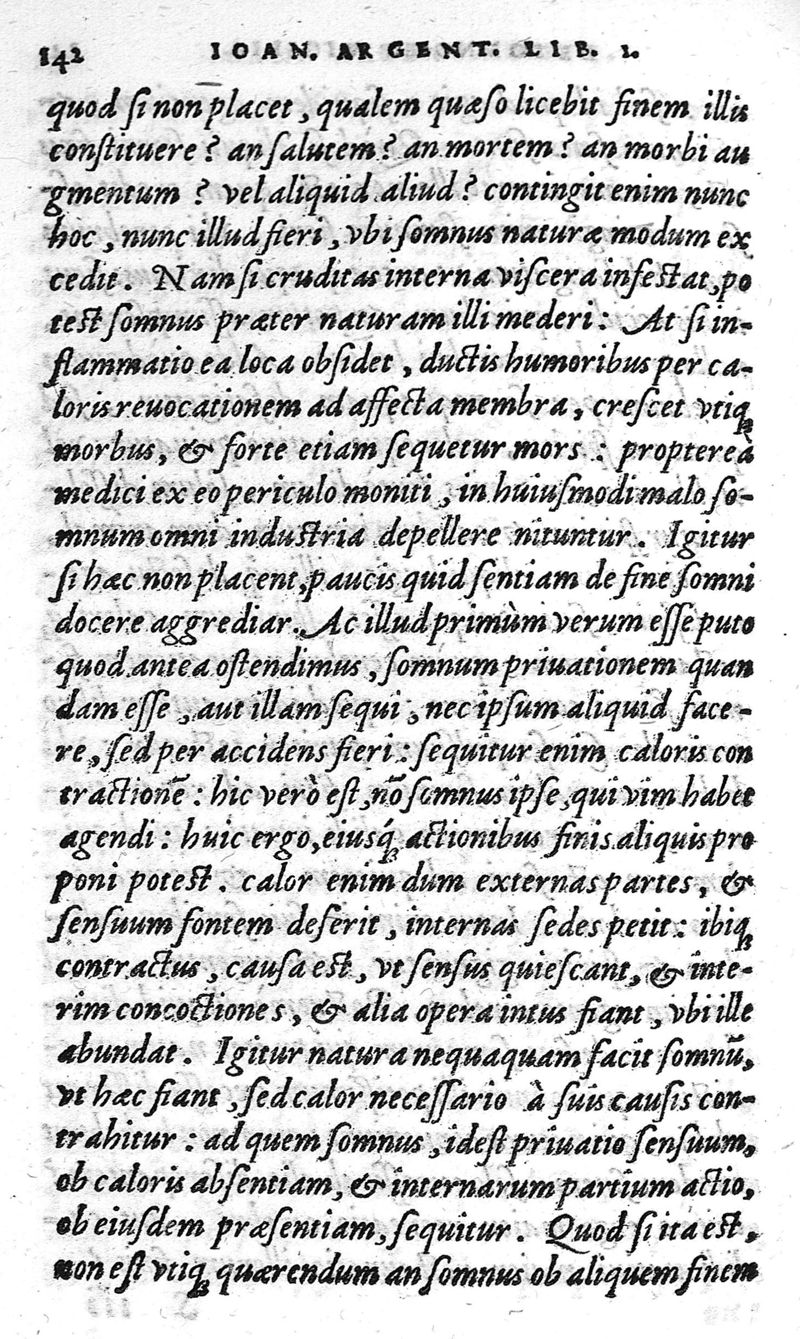 142 IOAN. ARGENT. LIB. 1.
quod ſi non placet, qualem quæſo licebit finem illis
conſtituere? an ſalutem? an mortem? an morbi au
gmentum? vel aliquid aliud? contingit enim nunc
hoc, nunc illud fieri, vbi ſomnus naturæ modum ex
cedit. Nam ſi cruditas interna viſcera infeſtat, po
teſt ſomnus præter naturam illi mederi: At ſi in-
flammatio ea loca obſidet, ductis humoribus per ca-
loris reuocationem ad affecta membra, creſcet vtiqꝫ
morbus, & forte etiam ſequetur mors: propterea
medici ex eo periculo moniti, in huiuſmodi malo ſo-
mnum omni induſtria depellere nituntur. Igitur
ſi hæc non placent, paucis quid ſentiam de fine ſomni
docere aggrediar. Ac illud primùm verum eſſe puto
quod antea oſtendimus, ſomnum priuationem quan
dam eſſe, aut illam ſequi, nec ipſum aliquid face-
re, ſed per accidens fieri: ſequitur enim caloris con
tractionẽ: hic verò eſt, nõ ſomnus ipſe, qui vim habet
agendi: huic ergo, eiusq́ꝫ actionibus finis aliquis pro
poni poteſt. calor enim dum externas partes, &
ſenſuum fontem deſerit, internas ſedes petit: ibiqꝫ
contractus, cauſa eſt, vt ſenſus quieſcant, & inte-
rim concoctiones, & alia opera intus fiant, vbi ille
abundat. Igitur natura nequaquam facit ſomnũ,
vt hæc fiant, ſed calor neceſſario à ſuis cauſis con-
trahitur: ad quem ſomnus, ideſt priuatio ſenſuum,
ob caloris abſentiam, & internarum partium actio,
ob eiuſdem præſentiam, ſequitur. Quod ſi ita eſt,
non eſt vtiqꝫ quærendum an ſomnus ob aliquem finem